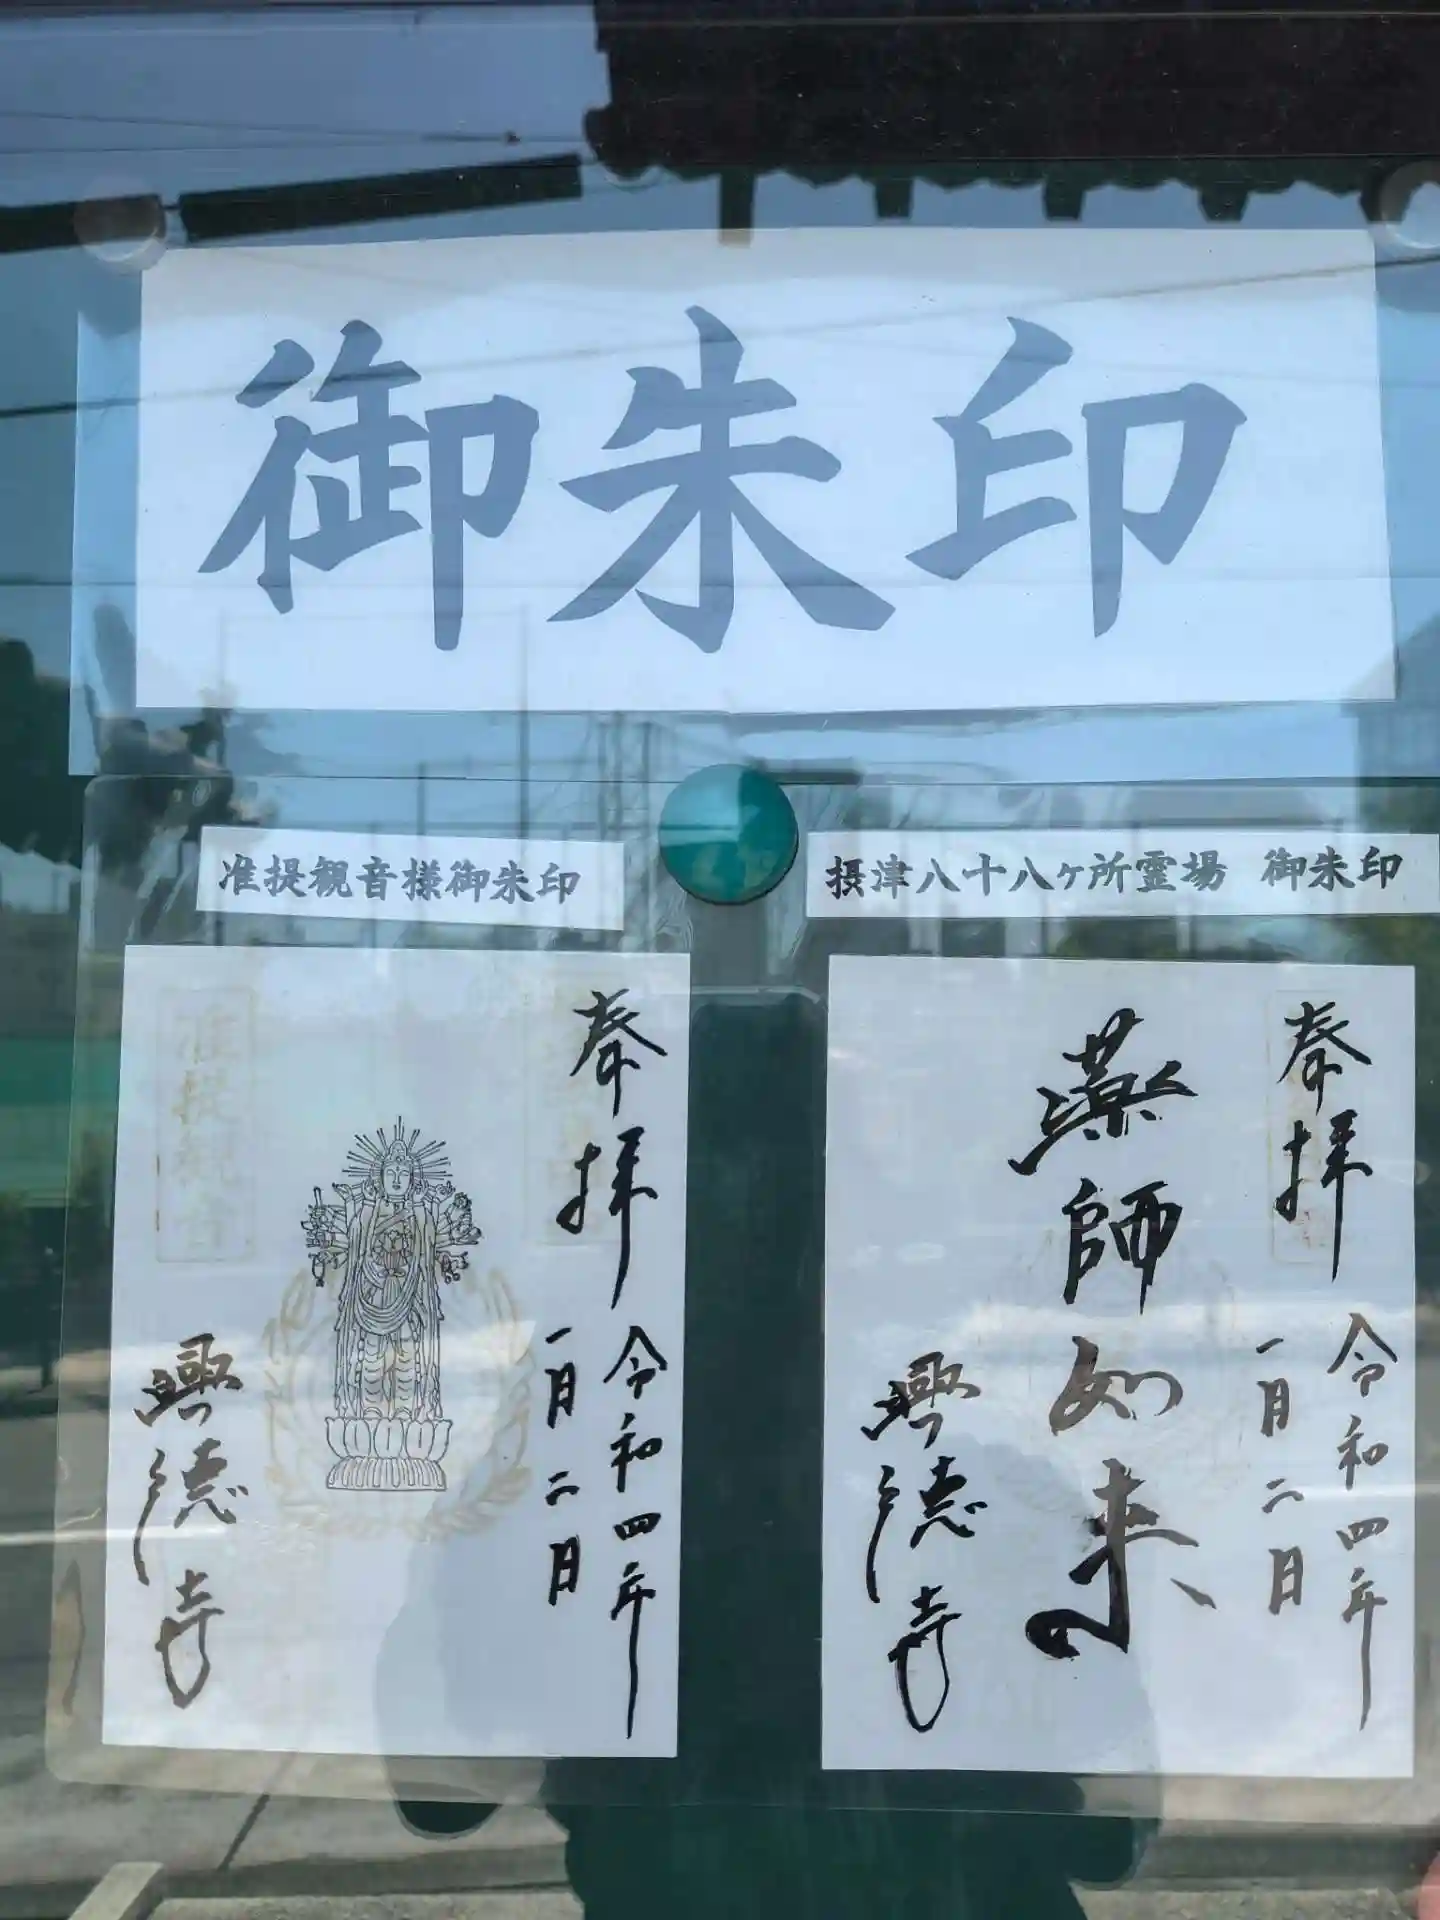 御朱印
准提観音様御朱印
奉拝
令和四年
一月二日
准提観音
興徳寺
摂津八十八ヶ所霊場 御朱印
奉拝
令和四年
一月二日
薬師如来
興徳寺